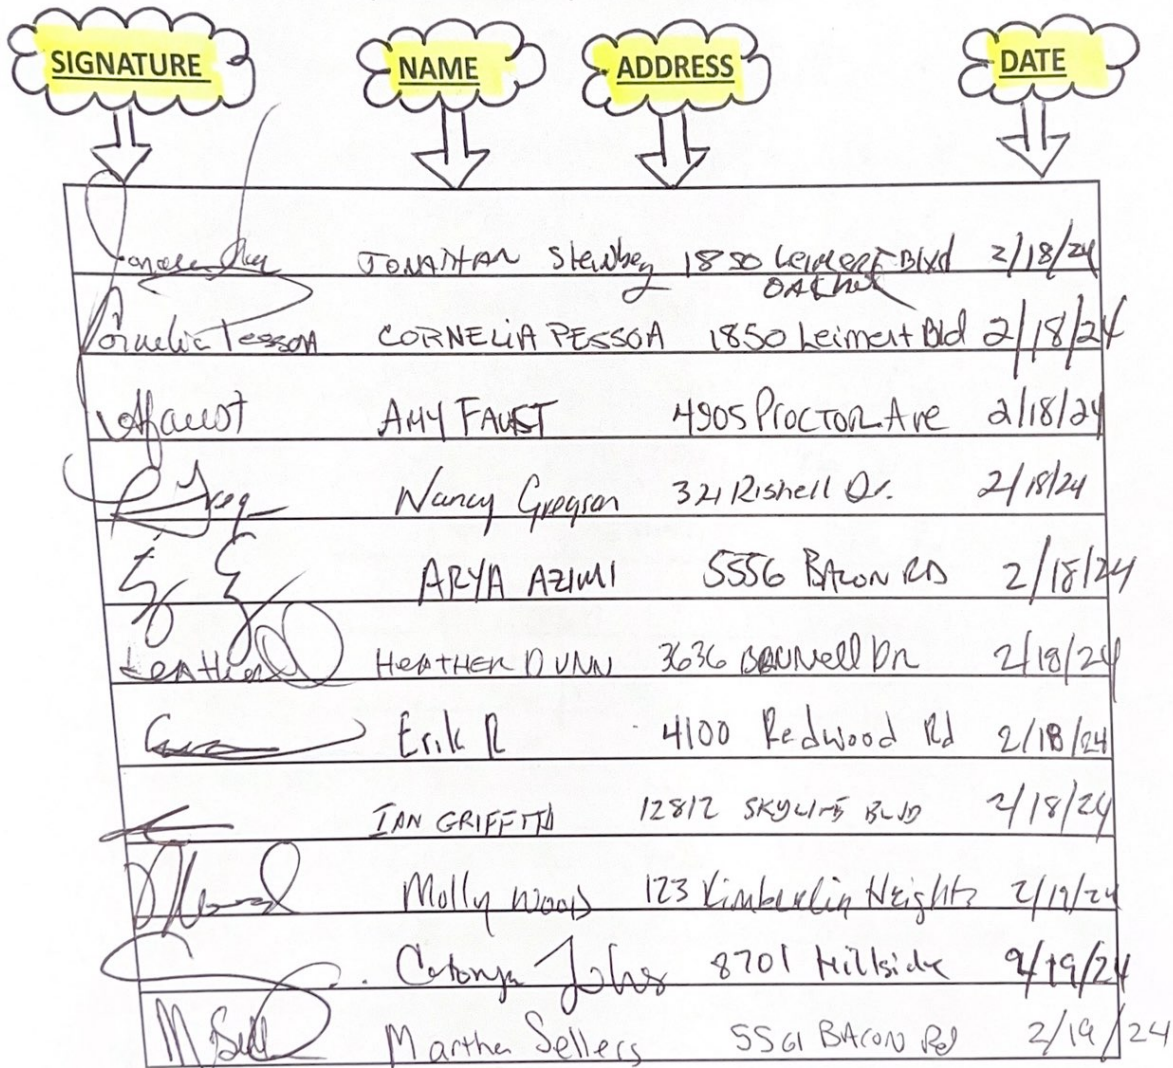 SIGNATURE NAME ADDRESS DATE
JONATHAN Steinberg 1850 Leimert Blvd 2/18/24
Cornelia Pessoa CORNELIA PESSOA 1850 Leimert Bld 2/18/24
AFaust AMY FAUST 4905 PROCTOR Ave 2/18/24
Nancy Gregson 321 Rishell Dr. 2/18/24
ARYA AZIMI 5556 BACON RD 2/18/24
HEATHER DUNN 3636 Dr 2/18/24
Erik R 4100 Redwood Rd 2/18/24
IAN GRIFFITH 12812 SKYLINE BLVD 2/18/24
Molly Wood 123 Kimberlin Heights 2/19/24
Johns 8701 Hillside 2/19/24
Martha Sellers 5561 BACON Rd 2/19/24